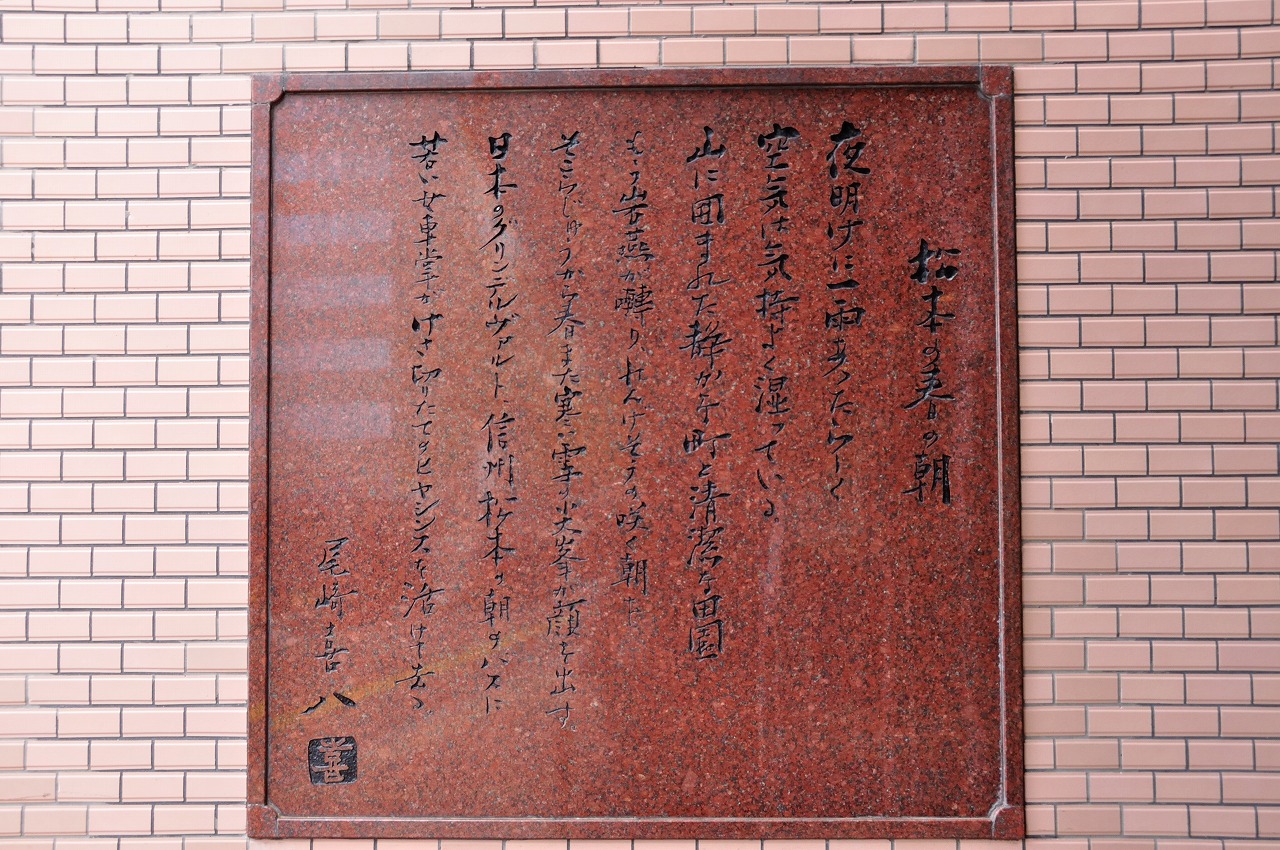 松本の春の朝
夜明けに一雨あったらしく
空気は気持よく湿っている。
山に囲まれた静かな町と清潔な田園
もう岩燕が囀り れんげそうの咲く朝だ
そこらじゅうから春まだ寒い雪の尖峯が顔を出す。
日本のグリンデルヴァルト、信州松本の朝のバスに
若い女車掌がけさ切りたてのヒヤシンスを活けて去る
尾崎喜八
喜